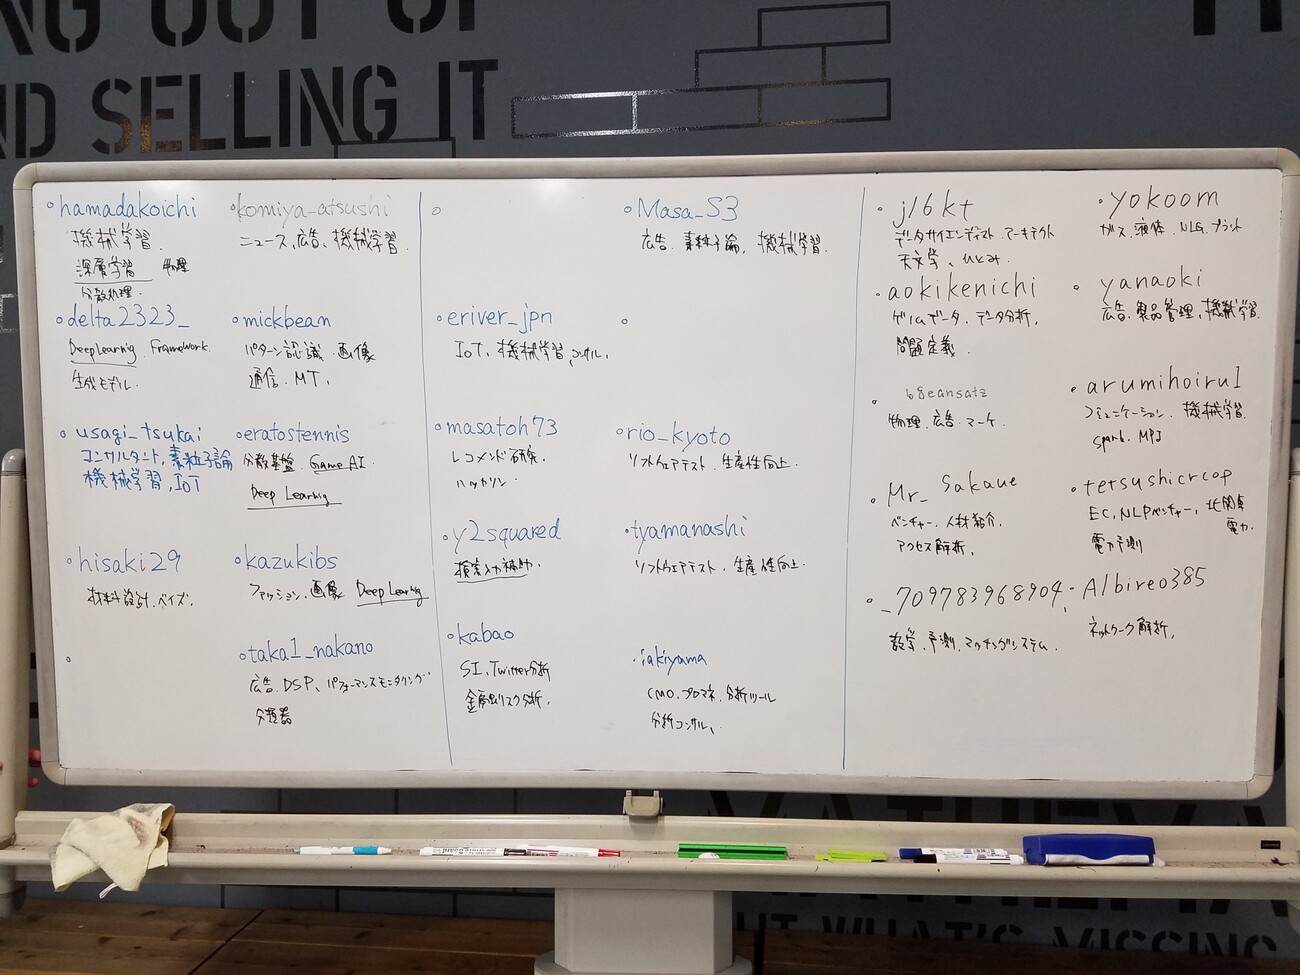 SELLING IT
hamadakoichi
機械学習.
深層学習 物理
分散処理.
delta2323_
Deep Learning. Framework.
生成モデル.
usagi_tsukai
コンサルタント, 素粒子論
機械学習, IoT
hisaki29
材料設計. ベイズ.
komiya_atsushi
ニュース, 広告, 機械学習.
mickbean
パターン認識. 画像
通信. MT.
eratostennis
分散基盤. Game AI.
Deep Learning
kazukibs
ファッション. 画像 Deep Learning
taka1_nakano
広告. DSP, パフォーマンスモニタリング
分類器
eriver_jpn
IoT, 機械学習, コンサル,
masatoh73
レコメンド研究.
ハッカソン.
y2squared
損害入力補助.
kabao
SI, Twitter分析
金融リスク分析.
Masa_S3
広告. 素粒子論, 機械学習.
rio_kyoto
ソフトウェアテスト. 生産性向上.
tyamanashi
ソフトウェアテスト. 生産性向上.
iakiyama
CMO. プロマネ. 分析ツール
分析コンサル,
j16kt
データサイエンティスト. アーキテクト
天文学, ひとみ.
aokikenichi
ゲームデータ. データ分析.
問題定義.
68eansatz
物理. 広告. マーケ.
Mr_Sakaue
ベンチャー. 人材紹介.
アクセス解析.
_709783968904.
数学. 予測. マッチングシステム.
yokoom
ガス. 液体. NLG. プラント
yanaoki
広告. 製品管理, 機械学習.
arumihoiru1
コミュニケーション. 機械学習.
Spark. MPI
tetsushicrcop
EC, NLPベンチャー, 北関東
電力.
電力予測
Albireo385
ネットワーク解析.
WHAT'S MISSING